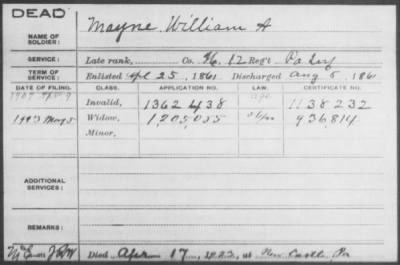 DEAD
NAME OF SOLDIER: Mayne William A
SERVICE: Late rank, Co. H, 12 Reg't Pa Inf
TERM OF SERVICE: Enlisted Apl 25, 1861 Discharged Aug 5, 1861
DATE OF FILING. CLASS. APPLICATION NO. LAW. CERTIFICATE NO.
1907 Invalid, 1362438 Age 1138232
1923 May 5 Widow, 1,205,055 936,814
Minor,
ADDITIONAL SERVICES:
REMARKS:
Died Apr 17, 1923, at New Castle, Pa